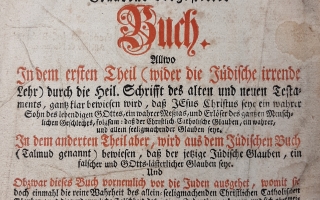 Buch.
Allwo
In dem ersten Theil (wider die Jüdische irrende
Lehr) durch die Heil. Schrifft des alten und neuen Testa-
ments, gantz klar bewiesen wird, daß JEsus Christus seye ein wahrer
Sohn des lebendigen GOttes, ein wahrer Messias, und Erlöser des gantzen Mensch-
lichen Geschlechts, folgsam: daß der Christlich-Catholische Glauben, ein wahrer,
und allein seeligmachender Glauben seye.
In dem anderten Theil aber, wird aus dem Jüdischen Buch
(Talmud genannt) bewiesen, daß der jetzige Jüdische Glauben, ein
falscher und GOtts-lästerlicher Glauben seye.
Und
Obzwar dieses Buch vornemlich vor die Juden ausgehet, womit sie
doch einmahl die reine Wahrheit des allein-seeligmachenden Christlichen Catholischen